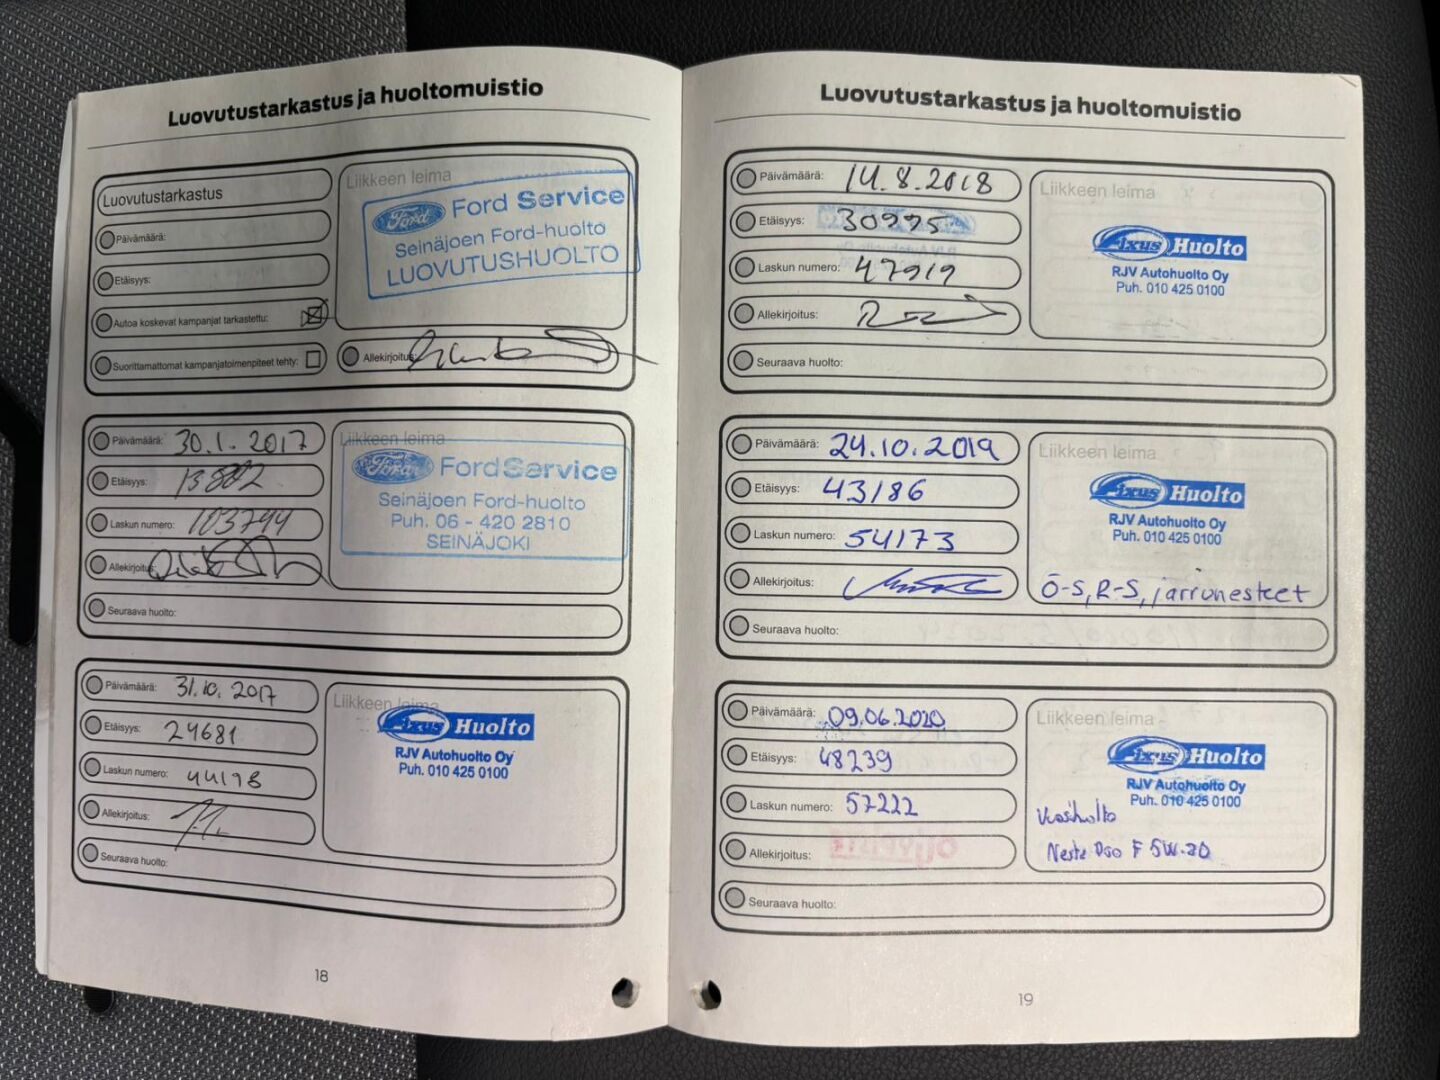 Luovutustarkastus ja huoltomuistio
Luovutustarkastus
Päivämäärä:
Etäisyys:
Autoa koskevat kampanjat tarkastettu:
Suorittamattomat kampanjatoimenpiteet tehty:
Liikkeen leima
Ford Ford Service
Seinäjoen Ford-huolto
LUOVUTUSHUOLTO
Allekirjoitus:
Päivämäärä: 30.1.2017
Etäisyys: 13882
Laskun numero: 103794
Allekirjoitus:
Seuraava huolto:
Liikkeen leima
Ford Ford Service
Seinäjoen Ford-huolto
Puh. 06 - 420 2810
SEINÄJOKI
Päivämäärä: 31.10.2017
Etäisyys: 24681
Laskun numero: 44198
Allekirjoitus:
Seuraava huolto:
Liikkeen leima
Fixus Huolto
RJV Autohuolto Oy
Puh. 010 425 0100
18
Luovutustarkastus ja huoltomuistio
Päivämäärä: 14.8.2018
Etäisyys: 30995
Laskun numero: 47919
Allekirjoitus:
Seuraava huolto:
Liikkeen leima
Fixus Huolto
RJV Autohuolto Oy
Puh. 010 425 0100
Päivämäärä: 24.10.2019
Etäisyys: 43186
Laskun numero: 54173
Allekirjoitus:
Seuraava huolto:
Liikkeen leima
Fixus Huolto
RJV Autohuolto Oy
Puh. 010 425 0100
Ö-S, R-S, jarrunesteet
Päivämäärä: 09.06.2020
Etäisyys: 48239
Laskun numero: 57222
Allekirjoitus:
Seuraava huolto:
Liikkeen leima
Fixus Huolto
RJV Autohuolto Oy
Puh. 010 425 0100
Vuosihuolto
Neste Pro F 5W-20
19